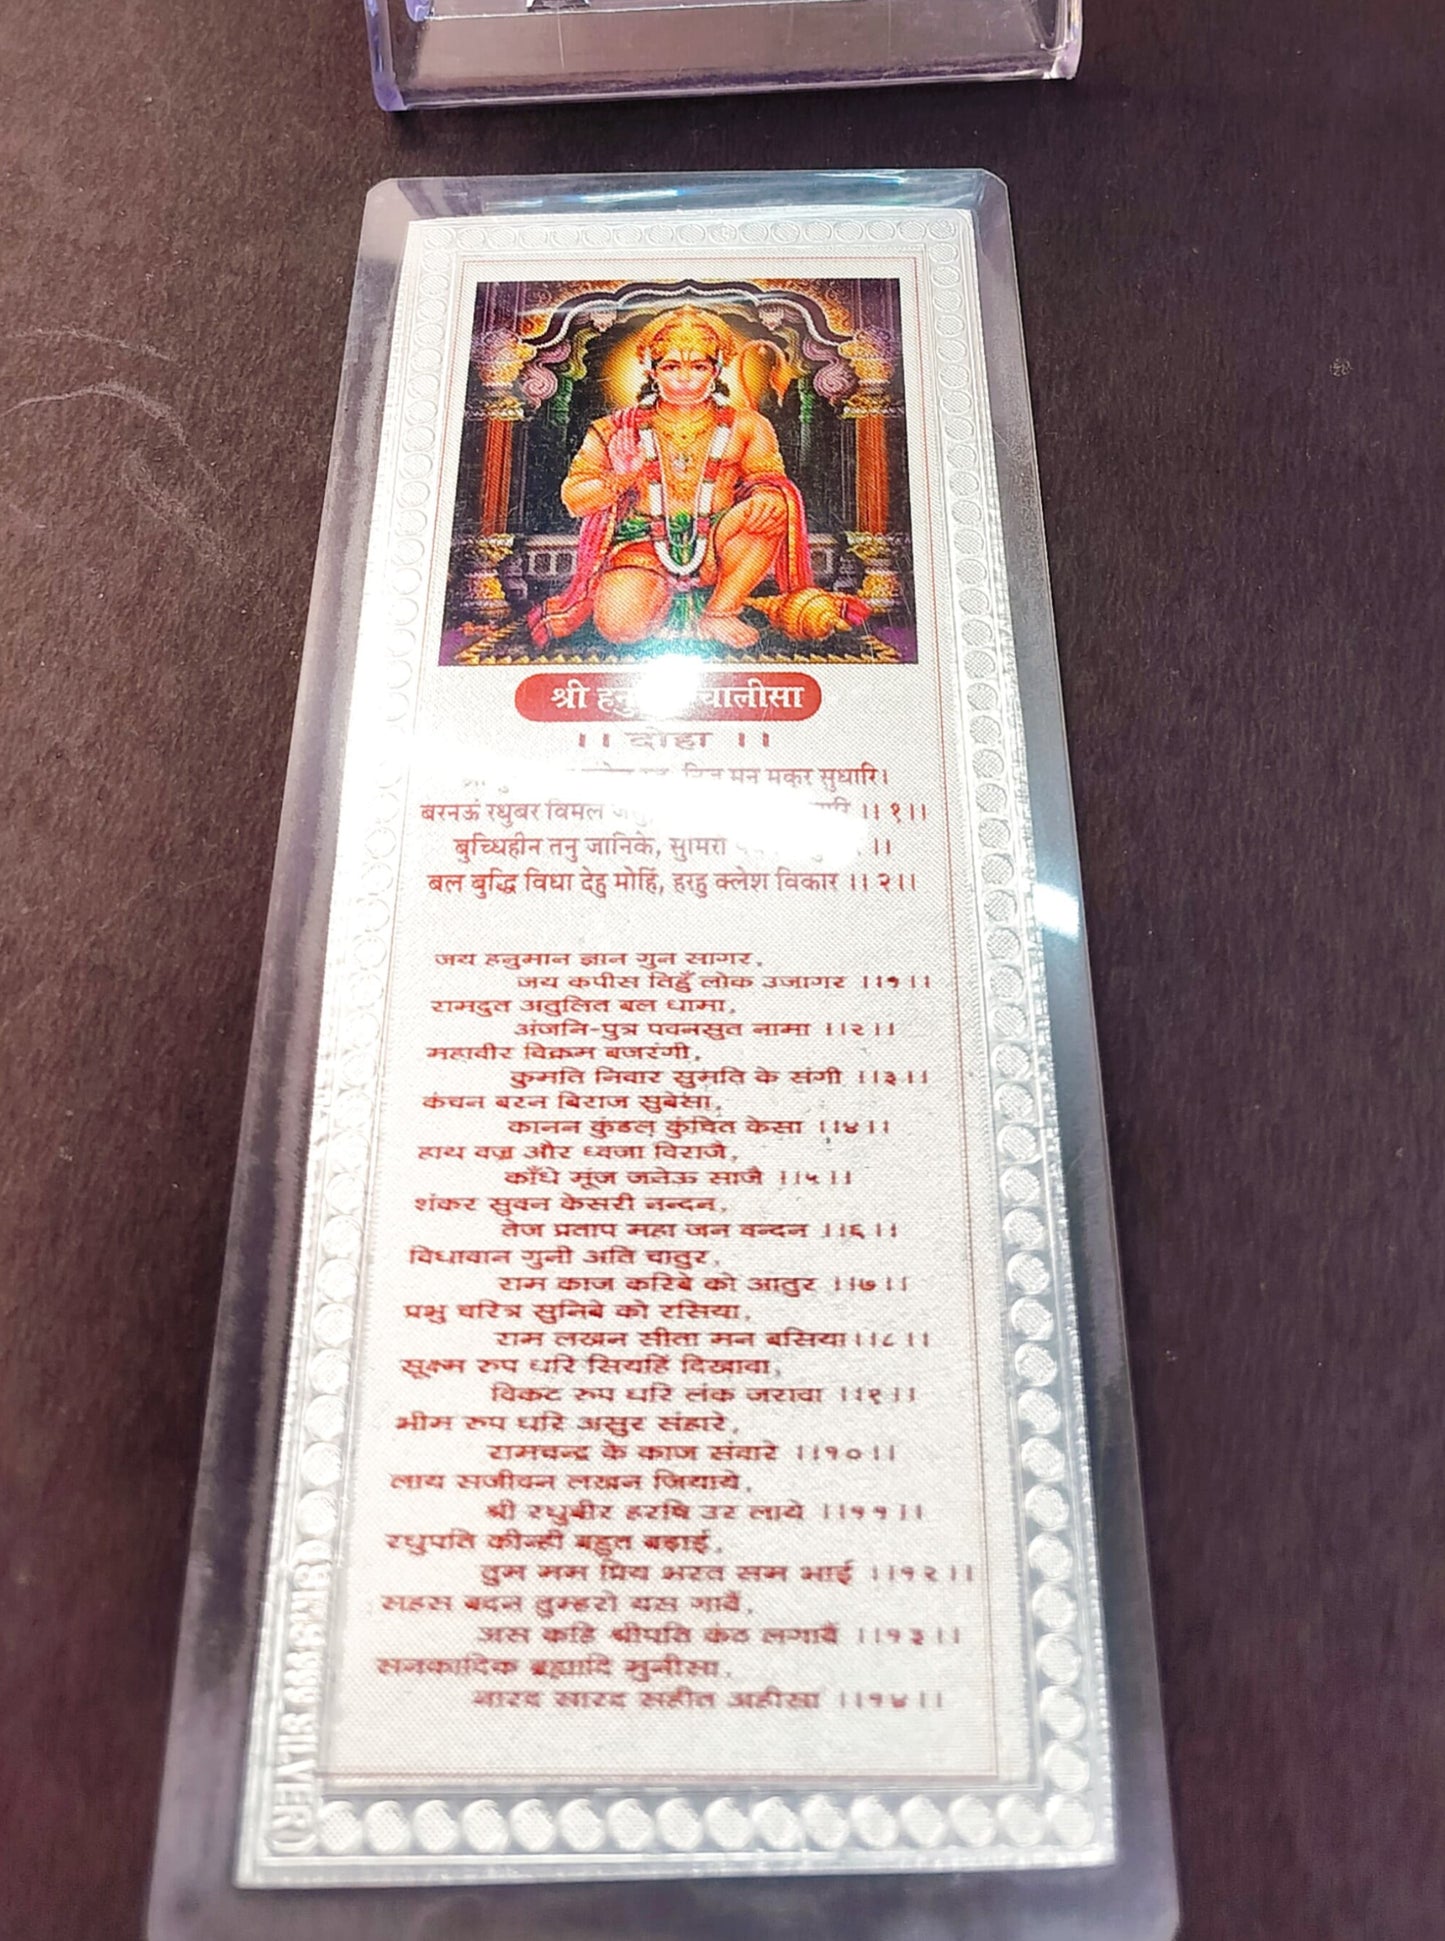 श्री चालीसा
।। दोहा ।।
मन मकुर सुधारि।
बरनऊं रघुबर विमल ।। १।।
बुच्धिहीन तनु जानिके, ।।
बल बुद्धि विधा देहु मोहिं, हरहु क्लेश विकार ।। २।।
जय हनुमान ज्ञान गुन सागर,
जय कपीस तिहुँ लोक उजागर ।।१।।
रामदुत अतुलित बल धामा,
अंजनि-पुत्र पवनसुत नामा ।।२।।
महावीर विक्रम बजरंगी,
कुमति निवार सुमति के संगी ।।३।।
कंचन बरन बिराज सुबेसा,
कानन कुंडल कुंचित केसा ।।४।।
हाथ वज्र और ध्वजा विराजै,
काँधे मूंज जनेऊ साजै ।।५।।
शंकर सुवन केसरी नन्दन,
तेज प्रताप महा जन वन्दन ।।६।।
विधावान गुनी अति चातुर,
राम काज करिबे को आतुर ।।७।।
प्रभु चरित्र सुनिबे को रसिया,
राम लखन सीता मन बसिया।।८।।
सूक्ष्म रुप धरि सियहिं दिखावा,
विकट रुप धरि लंक जरावा ।।९।।
भीम रुप धरि असुर संहारे,
रामचन्द्र के काज संवारे ।।१०।।
लाय सजीवन लखन जियाये,
श्री रघुबीर हरषि उर लाये ।।११।।
रघुपति कीन्ही बहुत बढ़ाई,
तुम मम प्रिय भरत सम भाई ।।१२।।
सहस बदन तुम्हरो यस गावैं,
अस कहि श्रीपति कंठ लगावैं ।।१३।।
सनकादिक ब्रह्मादि मुनीसा,
नारद सारद सहीत अहीसा ।।१४।।
SILVER)